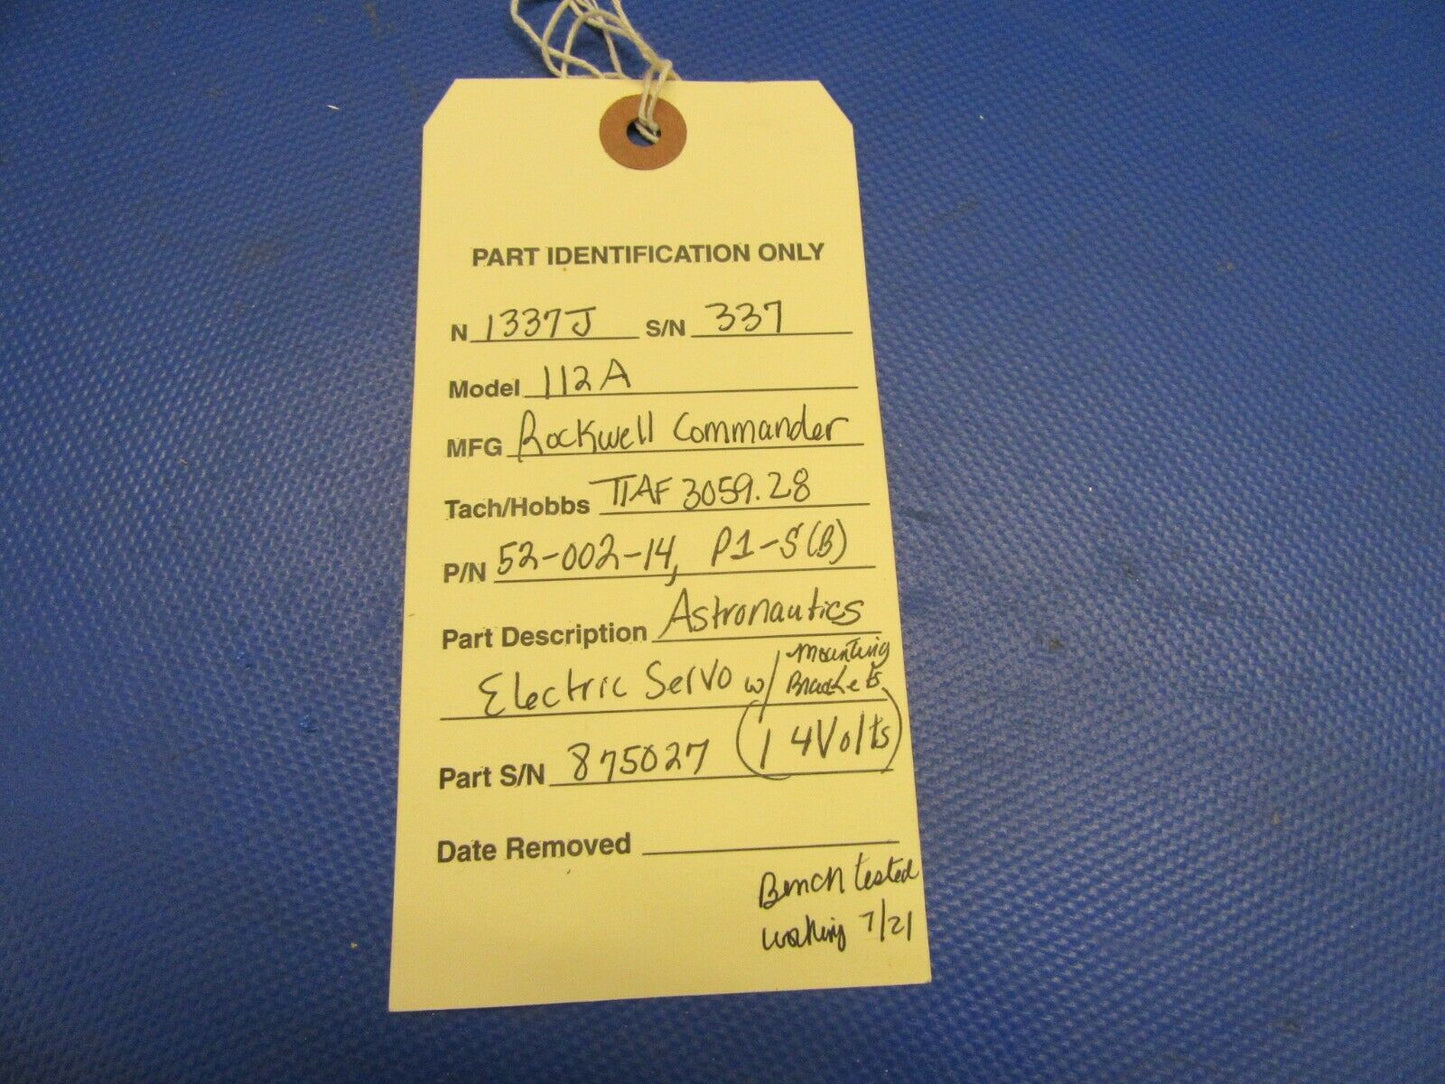 PART IDENTIFICATION ONLY
N 1337J S/N 337
Model 112A
MFG Rockwell Commander
Tach/Hobbs TTAF 3059.28
P/N 52-002-14, P1-S(B)
Part Description Astronautics
Electric Servo w/ Mounting Brackets
Part S/N 875027 (14Volts)
Date Removed
Bench tested
working 7/21